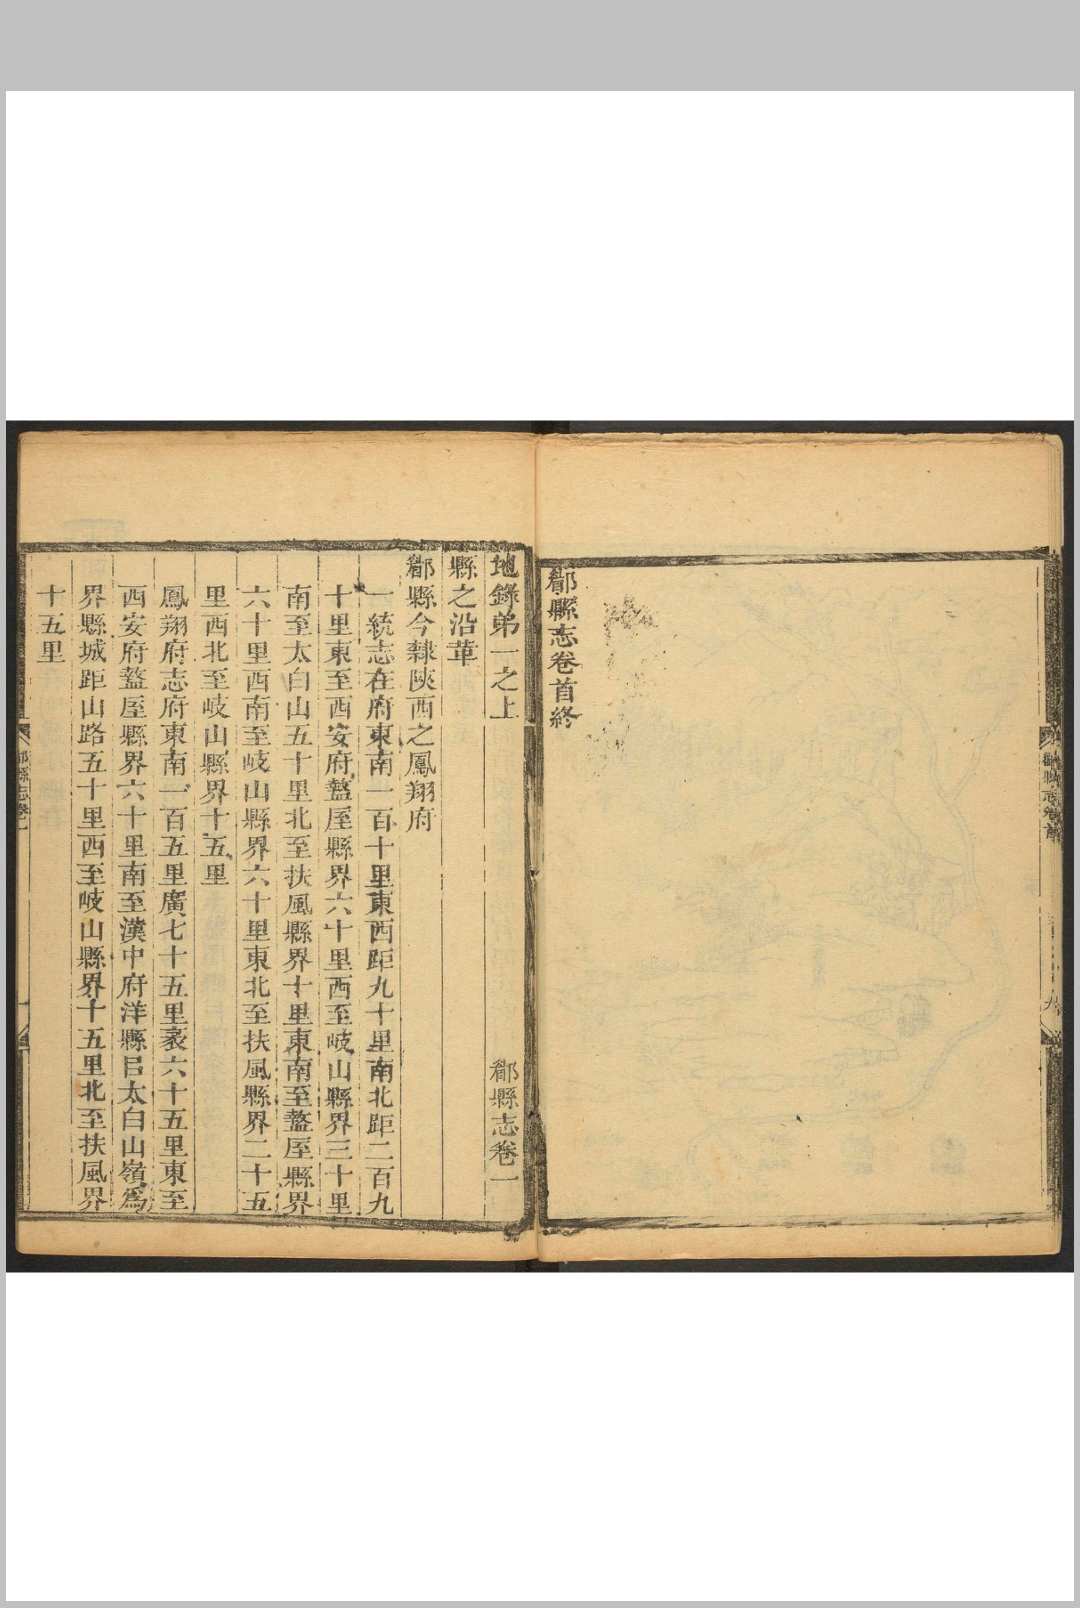 郿縣志卷首終
地錄弟一之上 郿縣志卷一
縣之沿革
郿縣今隸陝西之鳳翔府
一統志在府東南一百十里東西距九十里南北距二百九
十里東至西安府盩厔縣界六十里西至岐山縣界三十里
南至太白山五十里北至扶風縣界十里東南至盩厔縣界
六十里西南至岐山縣界六十里東北至扶風縣界二十五
里西北至岐山縣界十五里
鳳翔府志府東南一百五里廣七十五里袤六十五里東至
西安府盩厔縣界六十里南至漢中府洋縣㠯太白山嶺爲
界縣城距山路五十里西至岐山縣界十五里北至扶風界
十五里
郿縣志卷一